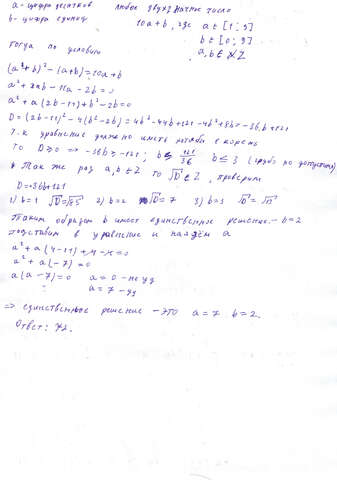 a - цифра десятков любое двухзначное число
b - цифра единиц 10a+b, где a ∈ [1; 9]
b ∈ [0; 9]
Тогда по условию a, b ∈ Z
(a+b)² - (a+b) = 10a+b
a² + 2ab - 11a - 2b = 0
a² + a(2b-11) + b² - 2b = 0
D = (2b-11)² - 4(b²-2b) = 4b² - 44b + 121 - 4b² + 8b = -36b + 121
т.к уравнение должно иметь хотя бы 1 корень
то D ≥ 0 => -36b ≥ -121; b ≤ 121/36 b ≤ 3 (грубо по допустим)
Так же раз a, b ∈ Z то √D ∈ Z, проверим
D = -36b+121
1) b=1 √D = √85 2) b=2 √D = 7 3) b=3 √D = √13
Таким образом b имеет единственное решение - b=2
подставим в уравнение и найдём a
a² + a(4-11) + 4 - 4 = 0
a² + a(-7) = 0
a(a-7) = 0 a = 0 - не уд
a = 7 - уд
=> единственное решение - это a=7 b=2.
Ответ: 72.